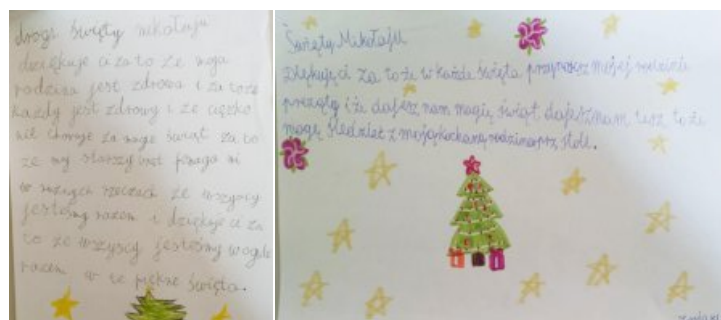 drogi święty mikołaju
dziękuje ci za to że moja
rodzina jest zdrowa i za to że
każdy jest zdrowy i że ciężko
nie choruje za magie świąt za to
że my starszy brat pomaga mi
w rożnych rzeczach że wszyscy
jesteśmy razem i dziękuje ci za
to że wszyscy jesteśmy w ogule
razem w te piękne święta.
Święty Mikołaju
Dziękuję ci za to że w każde święta przynosisz mojej rodzinie
prezęty i że dajesz nam magię świąt dajesz nam tesz to że
mogę śiedzieć z moją kochaną rodziną prz stole.